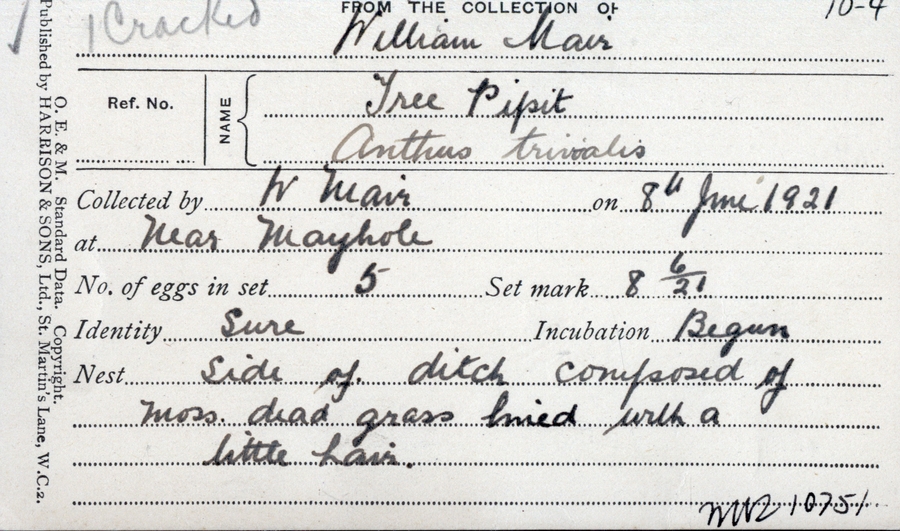 1 Cracked
FROM THE COLLECTION OF
10-4
William Mair
Ref. No.
NAME
Tree Pipit
Anthus trivialis
Collected by W Mair on 8th June 1921
at Near Mayhole
No. of eggs in set 5 Set mark 8 6/21
Identity Sure Incubation Begun
Nest Side of ditch composed of
moss. dead grass lined with a
little hair.
10751
O. E. & M. Standard Data. Copyright.
Published by HARRISON & SONS, Ltd., St. Martin's Lane, W.C.2.